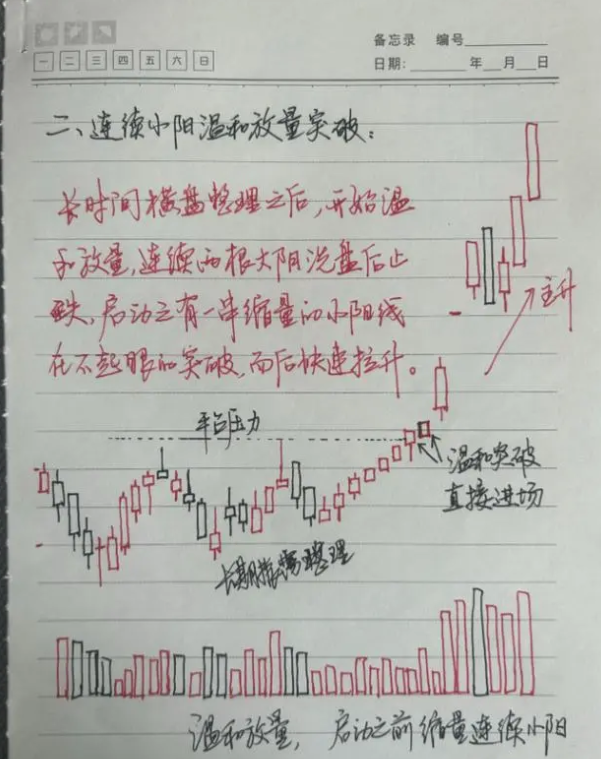 备忘录 编号
一 二 三 四 五 六 日
日期: 年 月 日
二、连续小阳温和放量突破:
长时间横盘整理之后,开始温
和放量,连续两根大阴洗盘后止
跌,启动之有一串缩量的小阳线
在不起眼的突破,而后快速拉升。
主升
平台压力
温和突破
直接进场
长期横盘整理
温和放量, 启动之前缩量连续小阳